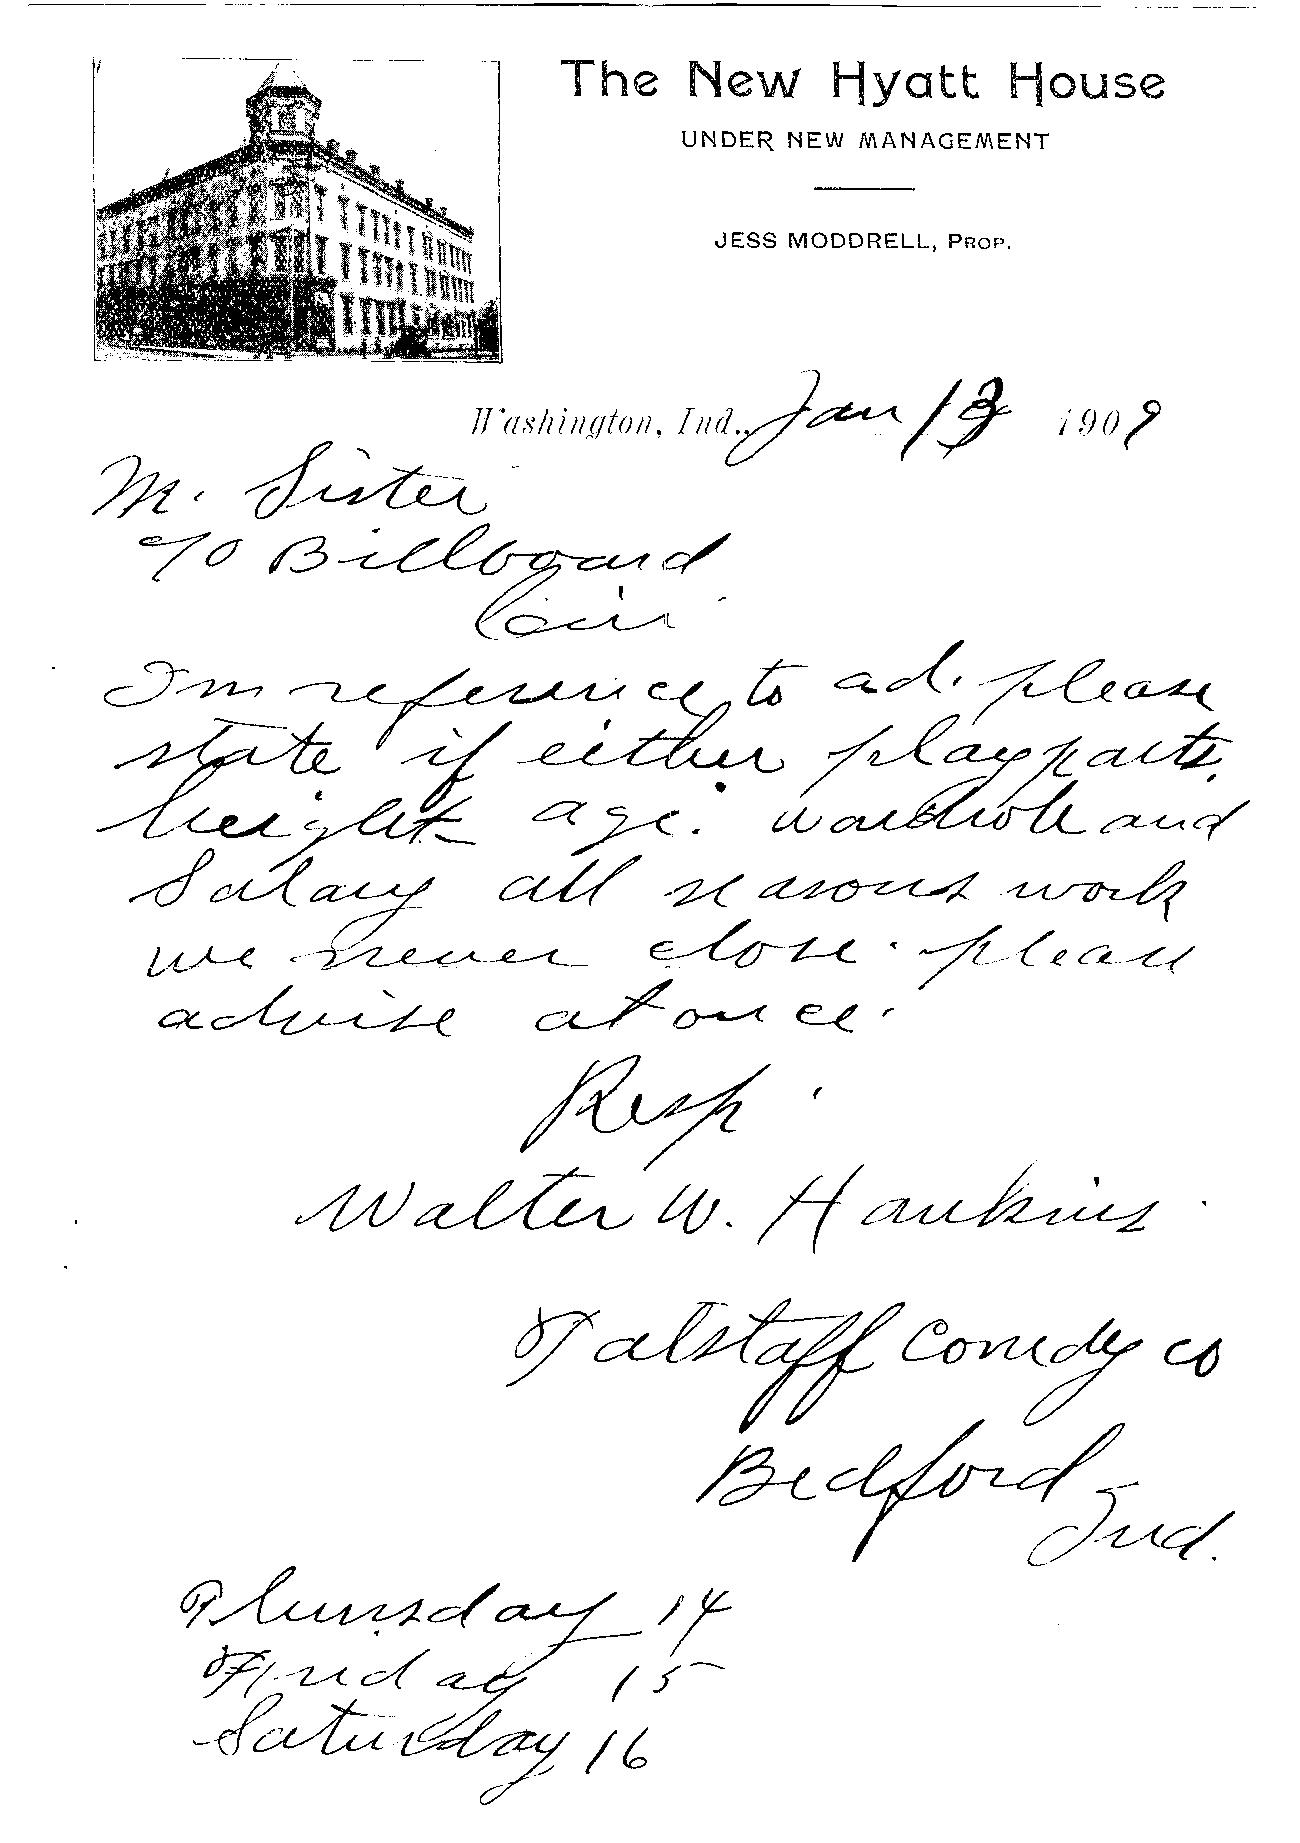 The New Hyatt House
UNDER NEW MANAGEMENT
JESS MODDRELL, PROP.
Washington, Ind., Jan 13 1909
M. Sister
c/o Billboard
Cin.
In reference to ad. please
state if either play parts.
height age. wardrobe and
Salary all seasons work
we never close. please
advise at once.
Resp.
Walter W. Hankins
Falstaff Comedy co
Bedford
Ind.
Thursday 14
Friday 15
Saturday 16